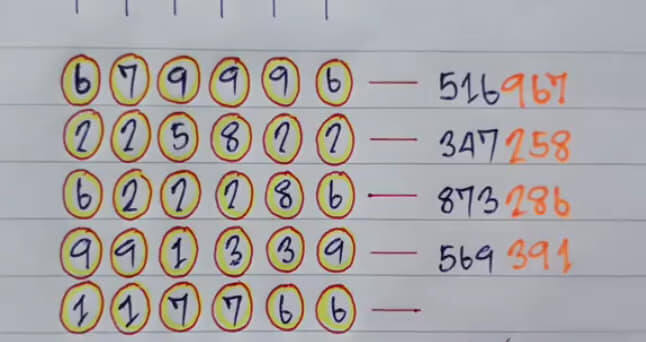 6 7 9 9 9 6 — 516967
2 2 5 8 2 2 — 347258
6 2 2 2 8 6 — 873286
9 9 1 3 3 9 — 569391
1 1 7 7 6 6 —